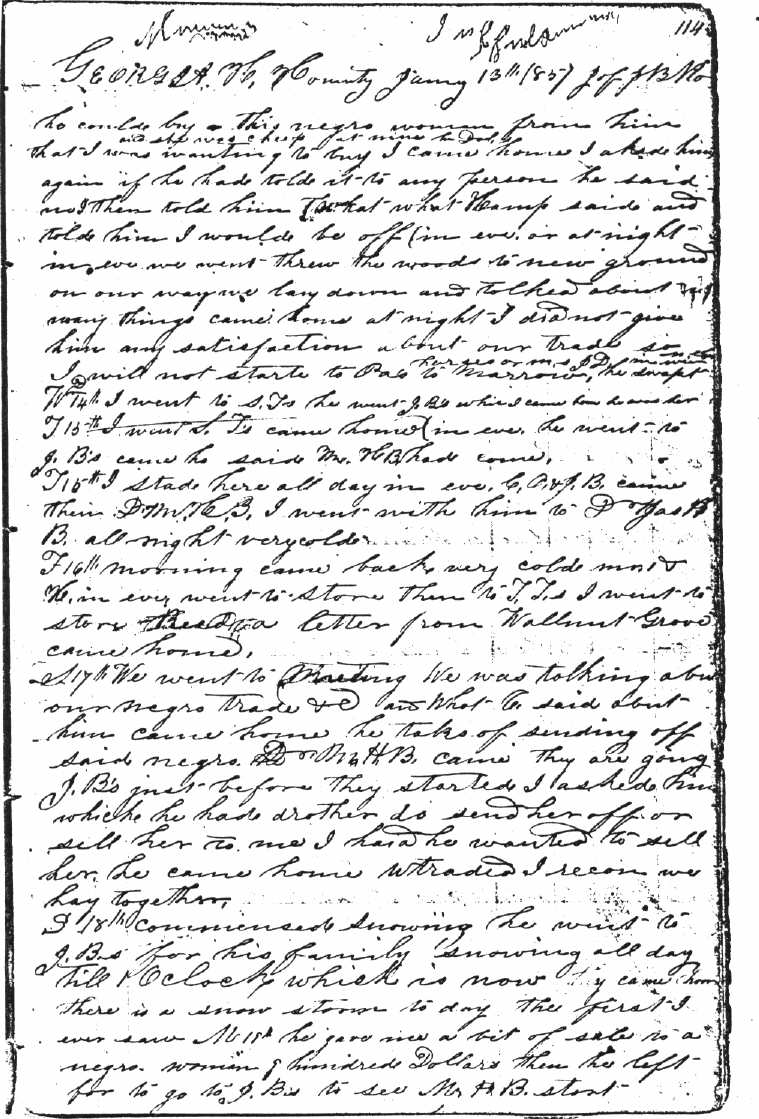 114
GEORGIA. H, County Jany 13th 1857 J of J B
he coulde buy this negro woman from him
and she was cheap at nine h Dols
that I was wanting to buy I came home I askde him
again if he hade tolde it to any person he said
no I then told him what what Hamp said and
tolde him I woulde be off in eve. or at night
in eve we went threw the woods to new ground
on our way we lay down and tolked about
many things came home at night I did not give
him any satisfaction about our trade so
I will not starte to Pa's to marrow, he swapt
W 14th I went to S. Ts he went J. Bs while I came home
T 15th I went S. Ts came home in eve. he went to
J. B's came he said Mr. H B. had come,
T 15th I stade here all day in eve. C, & J. B. came
then D M, H, B, I went with him to D
B. all night very colde
F 16th morning came back, very colde
H, in ever went to store then to T. T.s I went to
store a letter from Wallnut Grove
came home,
S 17th We went to Meeting We was talking abu
our negro trade &C and What said about
him came home he talks of sending off
said negro. Dr M, H B. came they are going
J. B's just before they started I askede him
which he hade drother do send her off or
sell her to me I he wanted to sell
her, he came home traded I recon we
lay together,
S 18th commensede snowing he went to
J. B.s for his family snowing all day
till 1 Oclock which is now came hom
there is a snow storm to day the first I
ever saw M 19th he gave me a bit of sale to a
negro. woman 9 hundrede Dollars then he left
for to go to J. Bs to see Mr H. B. start